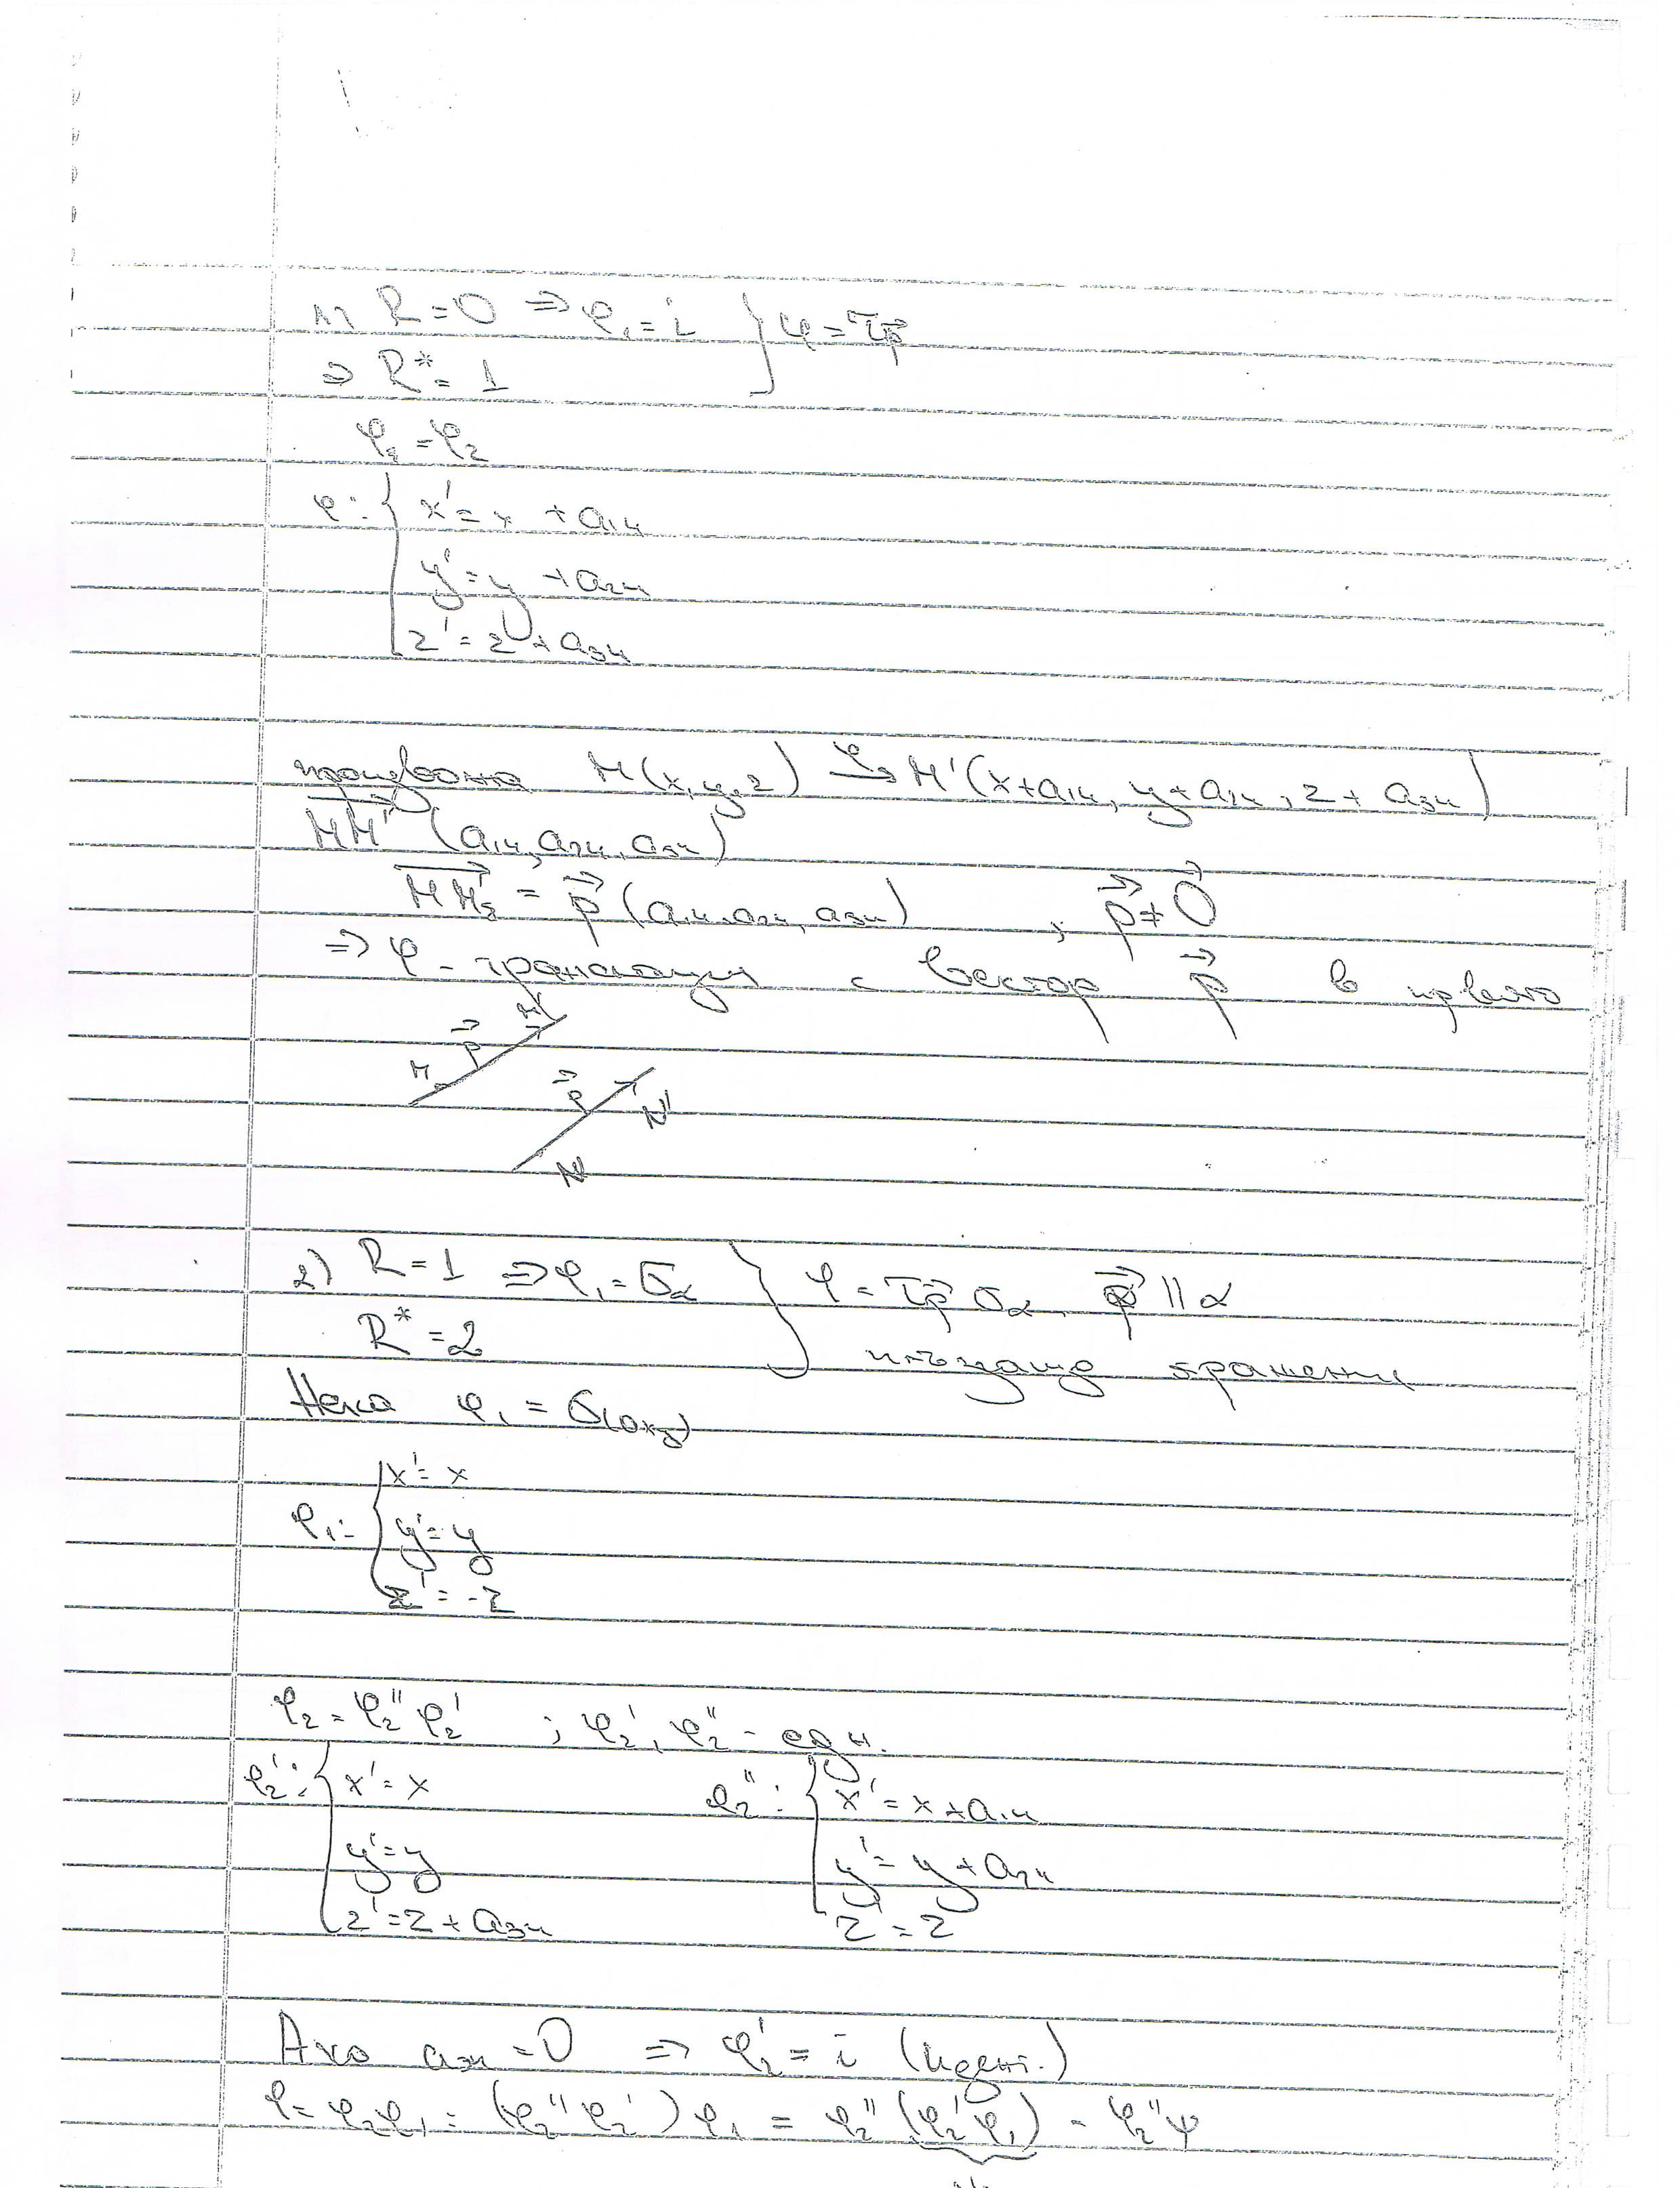 1) R = 0 ⇒ φ₁ = i } φ = τp⃗
⇒ R* = 1
φ₂ = φ₂
φ: { x' = x + a₁₄
y' = y + a₂₄
z' = z + a₃₄
произволна M(x, y, z) →φ M'(x + a₁₄, y + a₂₄, z + a₃₄)
MM'⃗ (a₁₄, a₂₄, a₃₄)
MM'⃗ = p⃗ (a₁₄, a₂₄, a₃₄) , p⃗ ≠ 0⃗
⇒ φ - транслация с вектор p⃗ в
M p⃗ M'
p⃗ N'
N
2) R = 1 ⇒ φ₁ = σα } φ = τp⃗ σα, p⃗ ∥ α
R* = 2 плъзгаща отражение
Нека φ₁ = σ(Oxy)
φ₁: { x' = x
y' = y
z' = -z
φ₂ = φ₂'' φ₂' ; φ₂', φ₂'' - едн.
φ₂': { x' = x φ₂'': { x' = x + a₁₄
y' = y y' = y + a₂₄
z' = z + a₃₄ z' = z
Ако a₃₄ = 0 ⇒ φ₂' = i (идент.)
φ = φ₂φ₁ = (φ₂'' φ₂') φ₁ = φ₂'' (φ₂' φ₁) = φ₂'' ψ